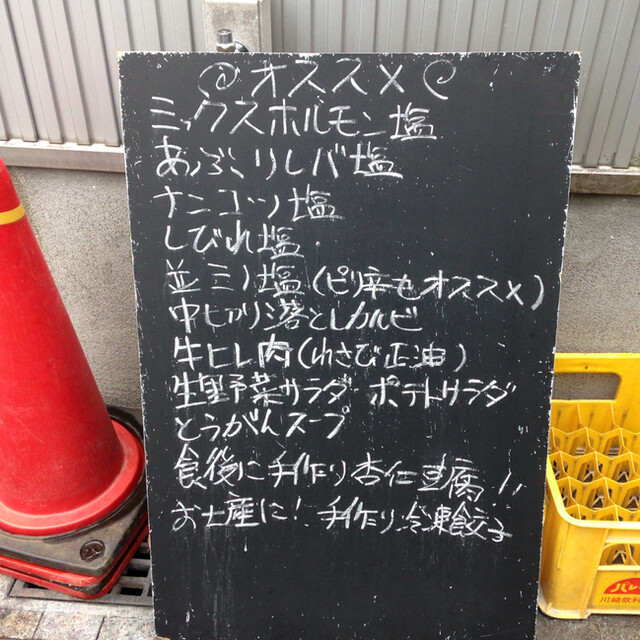 オススメ
ミックスホルモン塩
あぶりレバ塩
ナンコツ塩
しびれ塩
並ミノ塩(ピリ辛もオススメ)
中切り落としカルビ
牛ヒレ肉(わさび正油)
生野菜サラダ ポテトサラダ
とうがんスープ
食後に手作り杏仁豆腐!!
お土産に!手作り冷凍餃子
川崎飲料